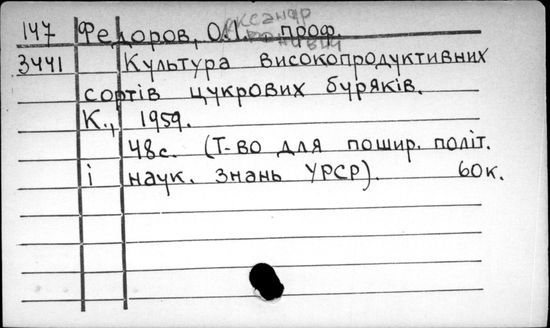 147 Федоров, О.І. проф.
3441 Культура високопродуктивних
сортів цукрових буряків.
К., 1959.
48с. (Т-во для пошир. політ.
і наук. знань УРСР). 60к.